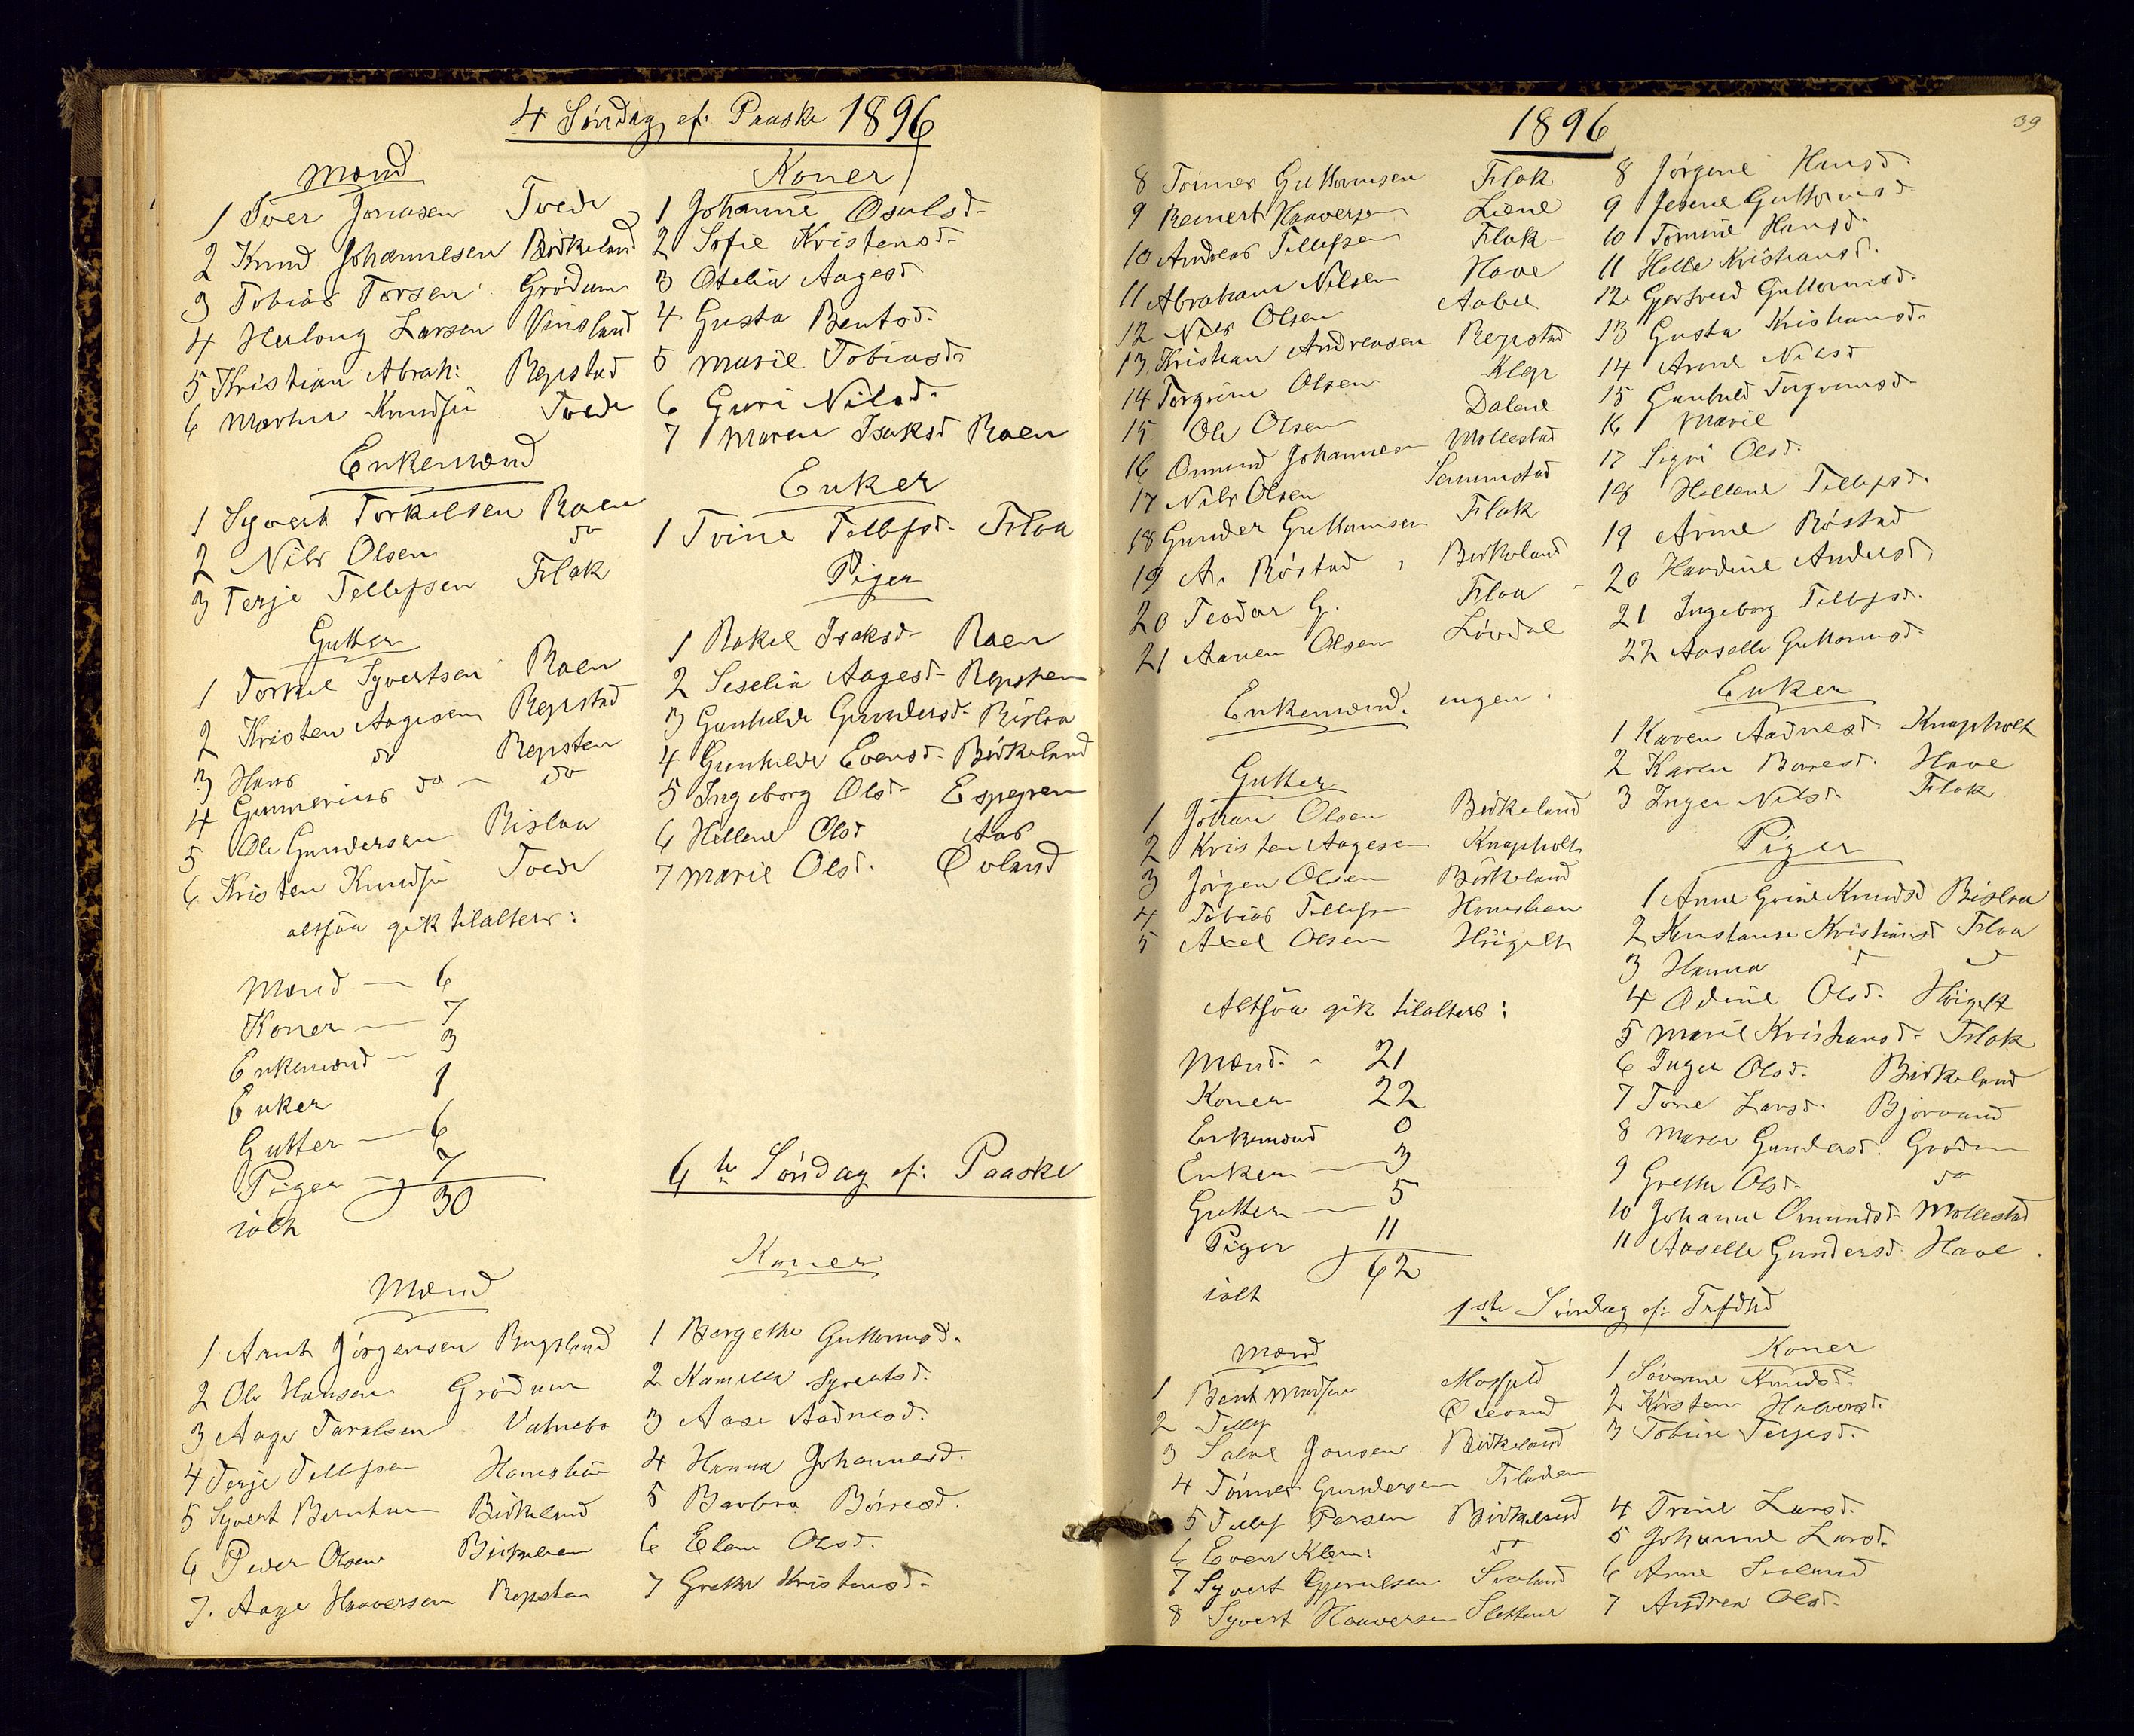 4 Søndag ef: Paaske 1896
Mænd
1 Iver Jonasen Tvede
2 Knud Johannesen Birkeland
3 Tobias Torsen Grødum
4 Herlong Larsen Vinsland
5 Kristian Abrah: Repstad
6 Martin Knudsen Tvede
Enkemænd
1 Syvert Torkelsen Raen
2 Nils Olsen do
3 Terje Tellefsen Flak
Gutter
1 Torkel Syvertsen Raen
2 Kristen Aagesen Repstad
3 Hans do Repsten
4 Gunnerius do - do
5 Ole Gundersen Rislaa
6 Kristen Knudsen Tvede
altsaa gik tilalters:
Mænd - 6
Koner - 7
Enkemænd - 3
Enker 1
Gutter - 6
Piger - 7
ialt 30
Koner
1 Johanne Osulsd.
2 Sofie Kristensd.
3 Otelia Aagesd
4 Gusta Bentsd.
5 Marie Tobiasd.
6 Guri Nilsd.
7 Maren Isaksd Raen
Enker
1 Trine Tellefsd. Flaa
Piger
1 Rakel Isaksd. Raen
2 Seselia Aagesd. Repsten
3 Gunhilde Gundersd. Rislaa
4 Gunhilde Evensd. Birkeland
5 Ingeborg Olsd. Espegren
6 Hellene Olsd Aas
7 Marie Olsd. Øvland
6te Søndag ef: Paaske
Mænd
1 Arnt Jörgensen Rugsland
2 Ole Hansen Grödum
3 Aage Taralsen Vatnebo
4 Terje Tellefsen
5 Syvert Berntsen Birkeland
6 Peder Olsen
7. Aage Haaversen Repsten
Koner
1 Bergethe Guttormsd.
2 Kamilla Syvertsd.
3 Aase Aadnesd.
4 Hanna Johannesd.
5 Barbra Börresd.
6 Elen Olsd.
7 Grethe Kristensd.
1896
39
8 Tönnes Guttormsen Flak
9 Reinert Haaversen Liene
10 Andreas Tellefsen Flak
11 Abraham Nilsen Have
12 Nils Olsen Aabel
13 Kristian Andreasen Repstad
14 Torgrim Olsen Klep
15 Ole Olsen Dalene
16 Omund Johannesen Mollestad
17 Nils Olsen Senumstad
18 Gunder Guttormsen Flak
19 A. Röstad, Birkeland
20 Teodor G. Flaa
21 Aanen Olsen Lövdal
Enkemænd. ingen.
Gutter
1 Johan Olsen Birkeland
2 Kristen Aagesen Knapholt
3 Jörgen Olsen Birkeland
4 Tobias Tellefsen
5 Axel Olsen Höigilt
Altsaa gik tilalters:
Mænd. - 21
Koner 22
Enkemænd 0
Enker - 3
Gutter - 5
Piger 11
ialt 62
8 Jörgine Hansd.
9 Jesine Guttormsd
10 Tomine Hansd.
11 Helle Kristiansd.
12 Gjertrud Guttormsd.
13 Gusta Kristiansd.
14 Anne Nilsd
15 Gunhild Torgrimsd
16 Marie
17 Sigri Olsd.
18 Hellene Tellefsd.
19 Anne Röstad
20 Hardine Andersd.
21 Ingeborg Tellefsd.
22 Aaselle Guttormsd.
Enker
1 Karen Aadnesd. Knapholt
2 Karen Börresd. Have
3 Inger Nilsd. Flak
Piger
1 Anne Gurine Knudsd Rislaa
2 Konstanse Kristiansd Flaa
3 Hanna
4 Odine Olsd. Höigilt
5 Marie Kristiansd. Flak
6 Inger Olsd. Birkeland
7 Tone Larsd. Bjorvand
8 Maren Gundersd. Grödum
9 Grethe Olsd. do
10 Johanne Omundsd. Mollestad
11 Aaselle Gundersd. Have.
1ste Söndag ef: Trefdhd
Mænd
1 Bent Madsen Mosfjeld
2 Tellef
3 Salve Jonsen Birkeland
4 Tönnes Gundersen Fladen
5 Tellef Persen Birkeland
6 Even Klem: do
7 Syvert Gjerulsen Svaland
8 Syvert Haaversen Slettene
Koner
1 Sövrine Knudsd.
2 Kirsten Halvorsd.
3 Tobine Terjesd.
4 Trine Larsd.
5 Johanne Larsd.
6 Anne Svaland
7 Andrea Olsd.